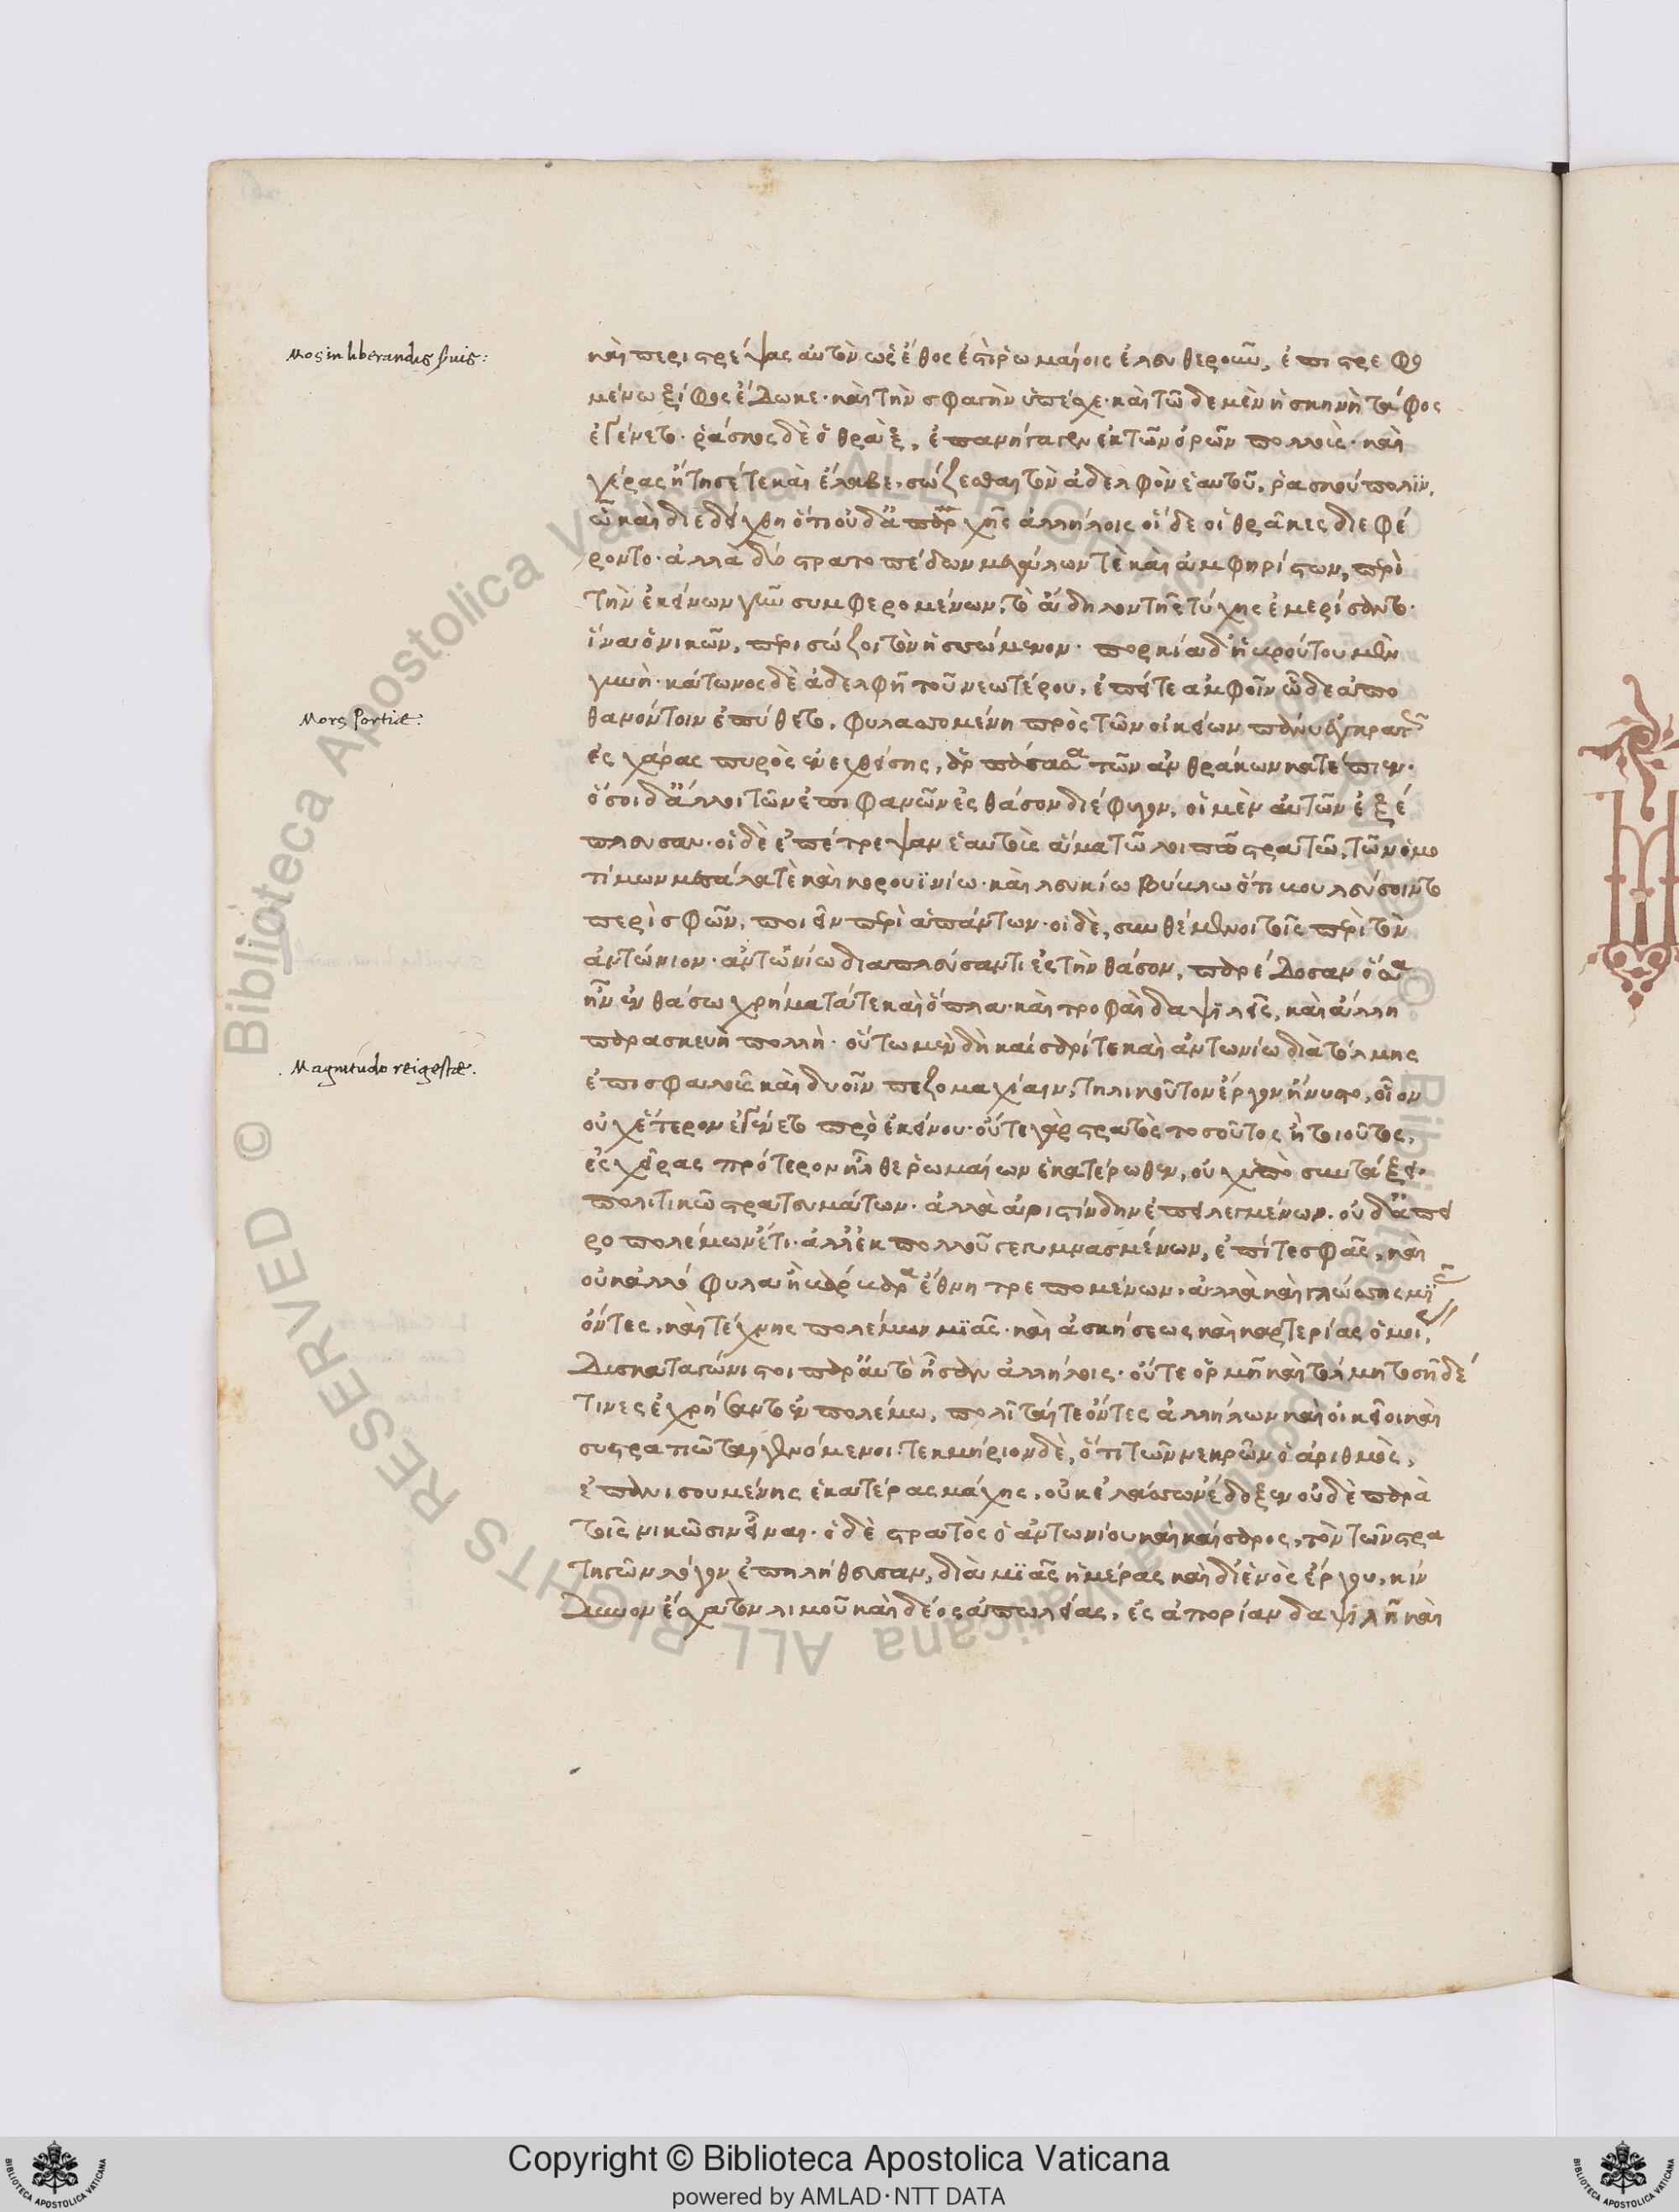 Mos in liberandis seruis:
καὶ περιστρέψας αὐτὸν ὡς ἔθος ἐστὶ ῥωμαίοις ἐλευθεροῦν, ἐπιστρεφο
μένω ξίφος ἔδωκε· καὶ τὴν σφαγὴν ὑπέσχε· καὶ τῶδε μὲν ἡ σκηνὴ τάφος
ἐγένετο· ῥάσκος δὲ ὁ θρᾲξ, ἐπανήγαγεν ἐκ τῶν ὀρῶν πολλοὺς· καὶ
γέρας ἤτησέ τε καὶ ἔλαβε, σώζεσθαι τὸν ἀδελφὸν ἑαυτοῦ, ῥασκούπολιν,
ᾧ καὶ διεδείχθη ὅτι οὐδ' ἀπ' ἀρχῆς ἀλλήλοις οἵδε οἱ θρᾷκες διεφέ
ροντο· ἀλλὰ δύο στρατοπέδων μεγάλων τὲ καὶ ἀμφηρίστων, περὶ
τὴν ἐκείνων γῆν συμφερομένων, τὸ ἄδηλον τῆς τύχης ἐμερίσαντο·
ἵνα ὁ νικῶν, περισώζοι τὸν ἡσσώμενον· πορκία δ' ἡ βρούτου μὲν
γυνὴ· κάτωνος δὲ ἀδελφὴ τοῦ νεωτέρου, ἐπεί τε ἀμφοῖν ὧδε ἀπο
Mors Portiæ:
θανόντοιν ἐπύθετο, φυλασσομένη πρὸς τῶν οἰκείων πάνυ ἐγκρατῶς
ἐς χάρας πυρὸς ἐνεχθείσης, ἁρπάσασα τῶν ἀνθράκων κατέπιεν·
ὅσοι δ' ἄλλοι τῶν ἐπιφανῶν ἐς θάσον διέφυγον, οἱ μὲν αὐτῶν ἐξέ
πλευσαν· οἱ δὲ ἐπέτρεψαν ἑαυτοὺς ἅμα τῶ λοιπῶ στρατῶ, τῶν ὁμο
τίμων μεσσάλα τὲ καὶ κορουϊνίω· καὶ λευκίω βύκλω ὅτι βουλεύσοιντο
περὶ σφῶν, ποιεῖν περὶ ἁπάντων· οἱ δὲ, συνθέμενοι τοῖς περὶ τὸν
ἀντώνιον· ἀντωνίω διαπλεύσαντι ἐς τὴν θάσον, παρέδοσαν ὅσα
ἦν ἐν θάσω χρήματά τε καὶ ὅπλα· καὶ τροφαὶ δαψιλεῖς, καὶ ἄλλη
παρασκευὴ πολλὴ· οὕτω μὲν δὴ καίσαρί τε καὶ ἀντωνίω διὰ τόλμης
Magnitudo rei gestæ.
ἐπισφαλοῦς καὶ δυοῖν πεζομαχίαιν, τηλικοῦτον ἔργον ἤνυστο, οἷον
οὐχ ἕτερον ἐγένετο πρὸ ἐκείνου· οὔτε γὰρ στρατὸς τοσοῦτος ἢ τοιοῦτος,
ἐς χεῖρας πρότερον ἦλθε ῥωμαίων ἑκατέρωθεν, οὐχ ὑπὸ συντάξει
πολιτικῶ στρατευμάτων· ἀλλὰ ἀριστίνδην ἐπειλεγμένων· οὐδ' ἀπει
ροπολέμων ἔτι· ἀλλ' ἐκ πολλοῦ γεγυμνασμένων, ἐπί τε σφᾶς, καὶ
οὐκ ἀλλόφυλα ἢ βάρβαρα ἔθνη τρεπομένων· ἀλλὰ καὶ γλώσσης μιᾶς
ὄντες, καὶ τέχνης πολέμων μιᾶς· καὶ ἀσκήσεως καὶ καρτερίας ὁμοίας,
δυσκαταγώνιστοι παρ' αὐτὸ ἦσαν ἀλλήλοις· οὔτε ὁρμῇ καὶ τόλμῃ τοσῇδέ
τινες ἐχρήσαντο ἐν πολέμω, πολῖταί τε ὄντες ἀλλήλων καὶ οἰκεῖοι καὶ
συστρατιῶται γενόμενοι· τεκμήριον δὲ, ὅτι τῶν νεκρῶν ὁ ἀριθμὸς,
ἐπανισουμένης ἑκατέρας μάχης, οὐκ ἐλάσσων ἔδοξεν οὐδὲ παρὰ
τοῖς νικῶσιν εἶναι· ὁ δὲ στρατὸς ὁ ἀντωνίου καὶ καίσαρος, τὸν τῶν στρα
τηγῶν λόγον ἐπηλήθευσαν, διὰ μιᾶς ἡμέρας καὶ δι' ἑνὸς ἔργου, κίν
δυνον ἔσχατον λιμοῦ καὶ δέος ἀπωλείας, ἐς ἀπορίαν δαψιλῆ καὶ